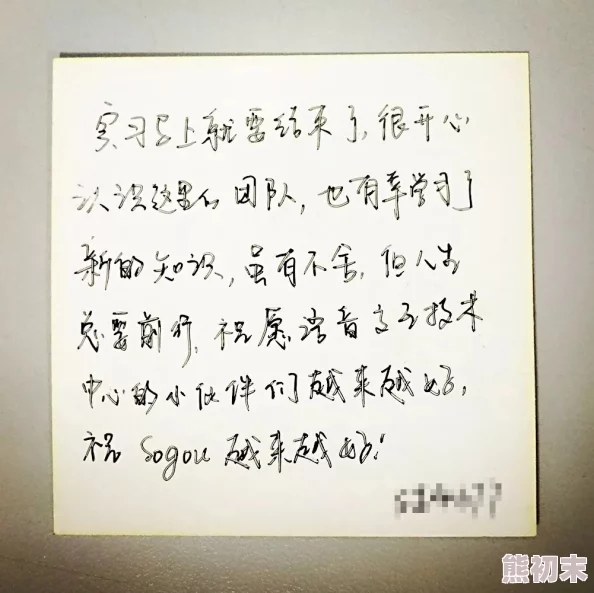 实习马上就要结束了,很开心
认识这里的团队,也有幸学习了
新的知识,虽有不舍,但人生
总要前行,祝愿语音交互技术
中心的小伙伴们越来越好,
祝Sogou越来越好!
熊初末